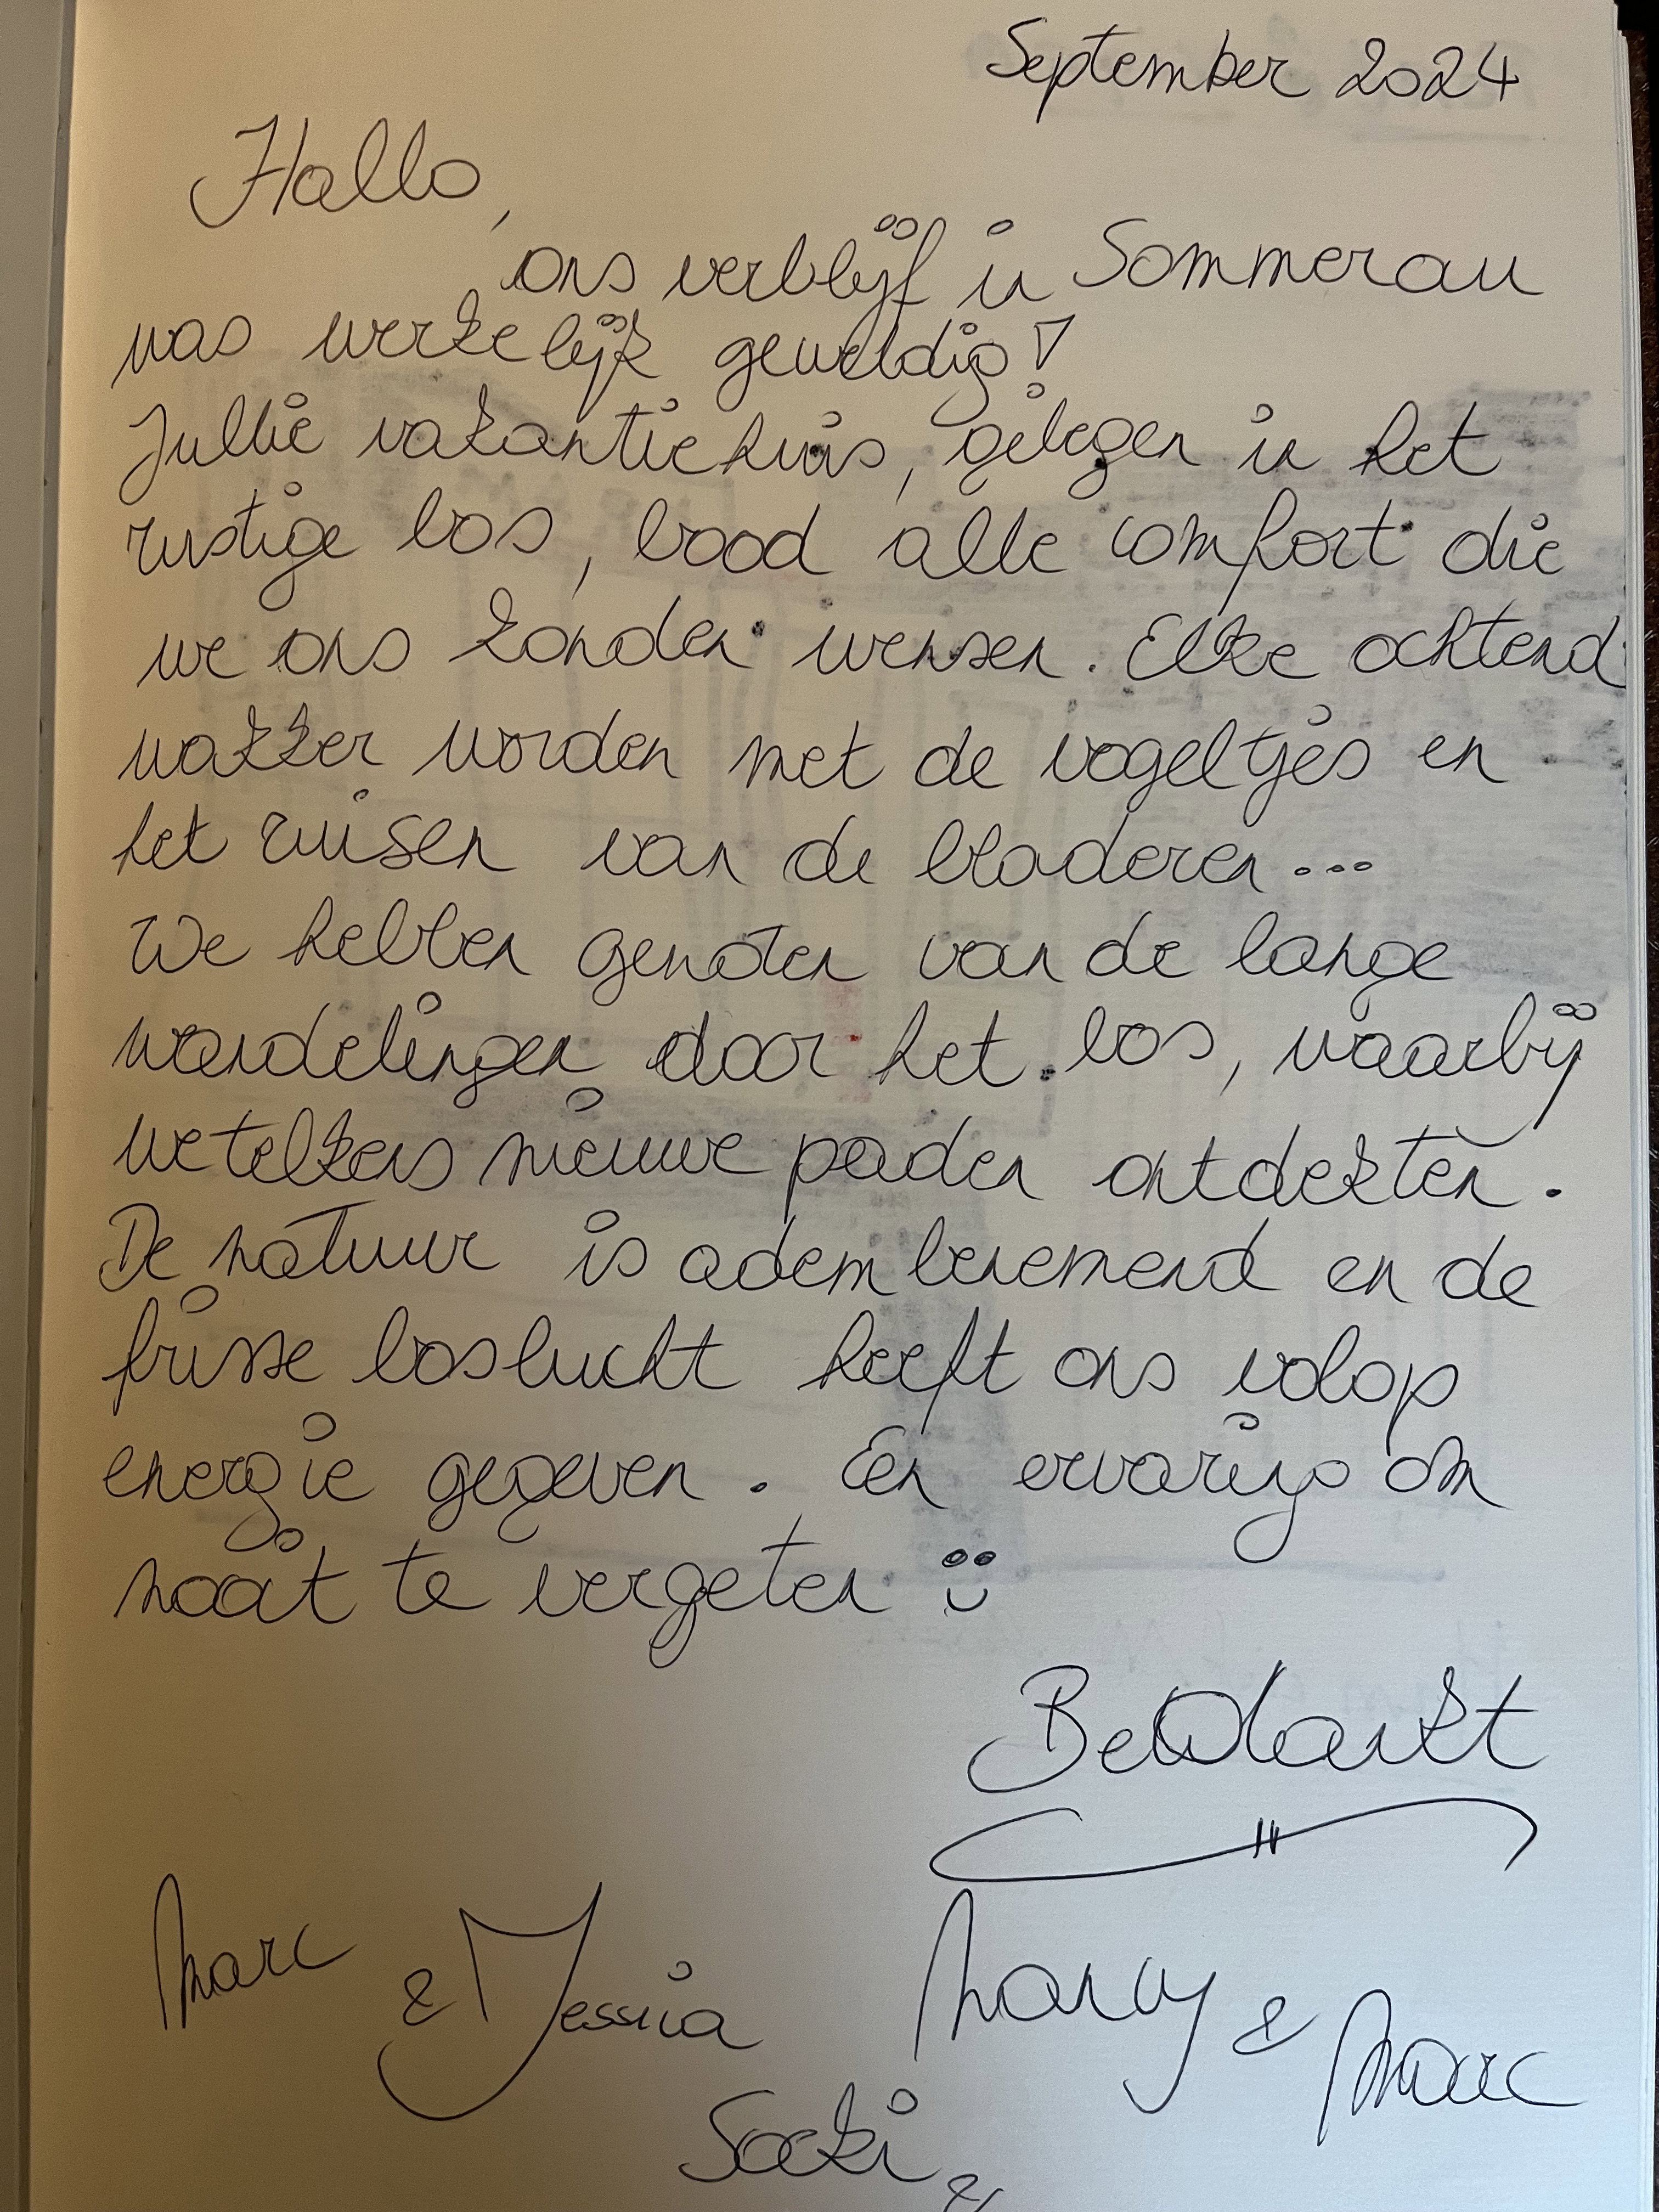 September 2024
Hallo,
ons verblijf in Sommerau
was werkelijk geweldig!
Jullie vakantiehuis, gelegen in het
rustige bos, bood alle comfort die
we ons konden wensen. Elke ochtend
wakker worden met de vogeltjes en
het ruisen van de bladeren...
We hebben genoten van de lange
wandelingen door het bos, waarbij
we telkens nieuwe paden ontdekten.
De natuur is adembenemend en de
frisse boslucht heeft ons volop
energie gegeven. Een ervaring om
nooit te vergeten :)
Bedankt
Marc & Jessica
&
Marc
&